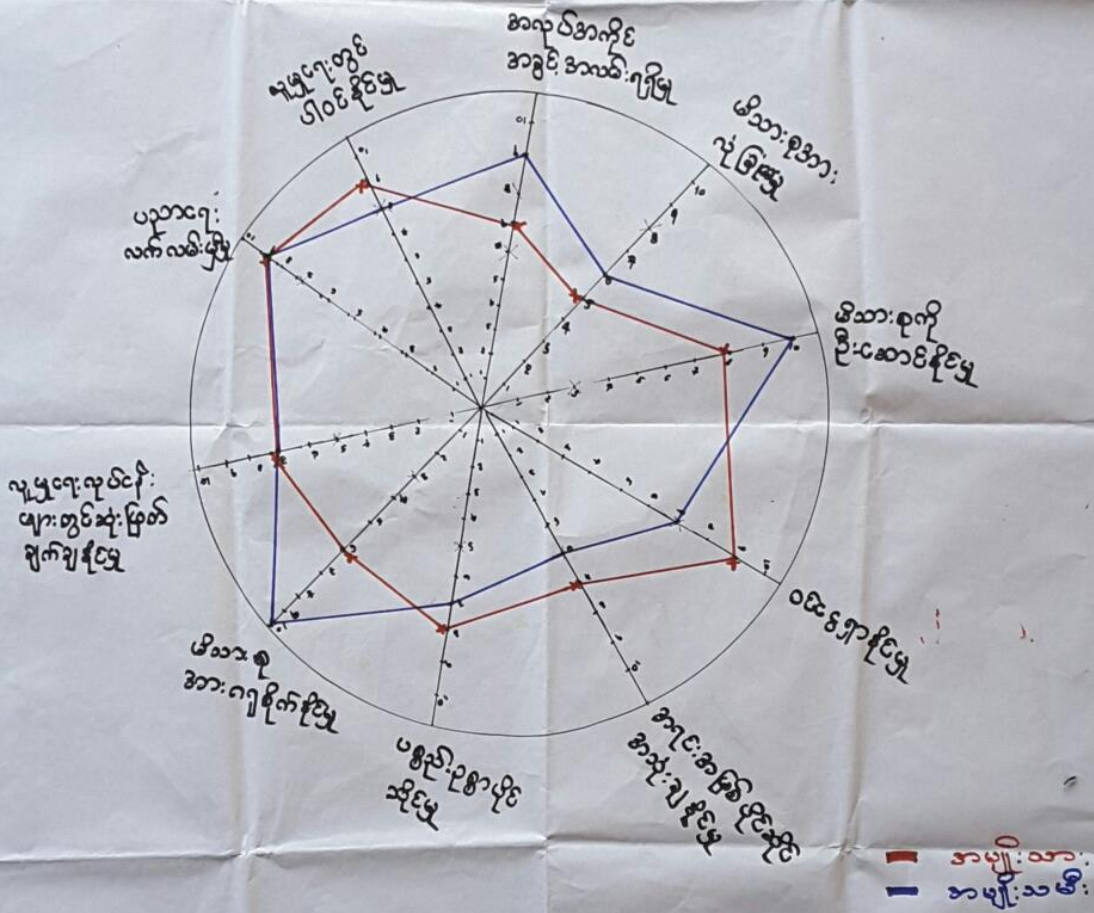 အလုပ်အကိုင်
အခွင့်အလမ်းရရှိမှု
မိသားစုအား
လုံခြုံမှု
မိသားစုကို
ဦးဆောင်နိုင်မှု
ဝင်ငွေရှာနိုင်မှု
အရင်းအမြစ်ပိုင်ဆိုင်
အသုံးချနိုင်မှု
ပစ္စည်းဥစ္စာပိုင်
ဆိုင်မှု
မိသားစု
အားဂရုစိုက်နိုင်မှု
လူမှုရေးလုပ်ငန်း
များတွင်ဆုံးဖြတ်
ချက်ချနိုင်မှု
ပညာရေး
လက်လှမ်းမှီမှု
လူမှုရေးတွင်
ပါဝင်နိုင်မှု
အမျိုးသား
အမျိုးသမီး